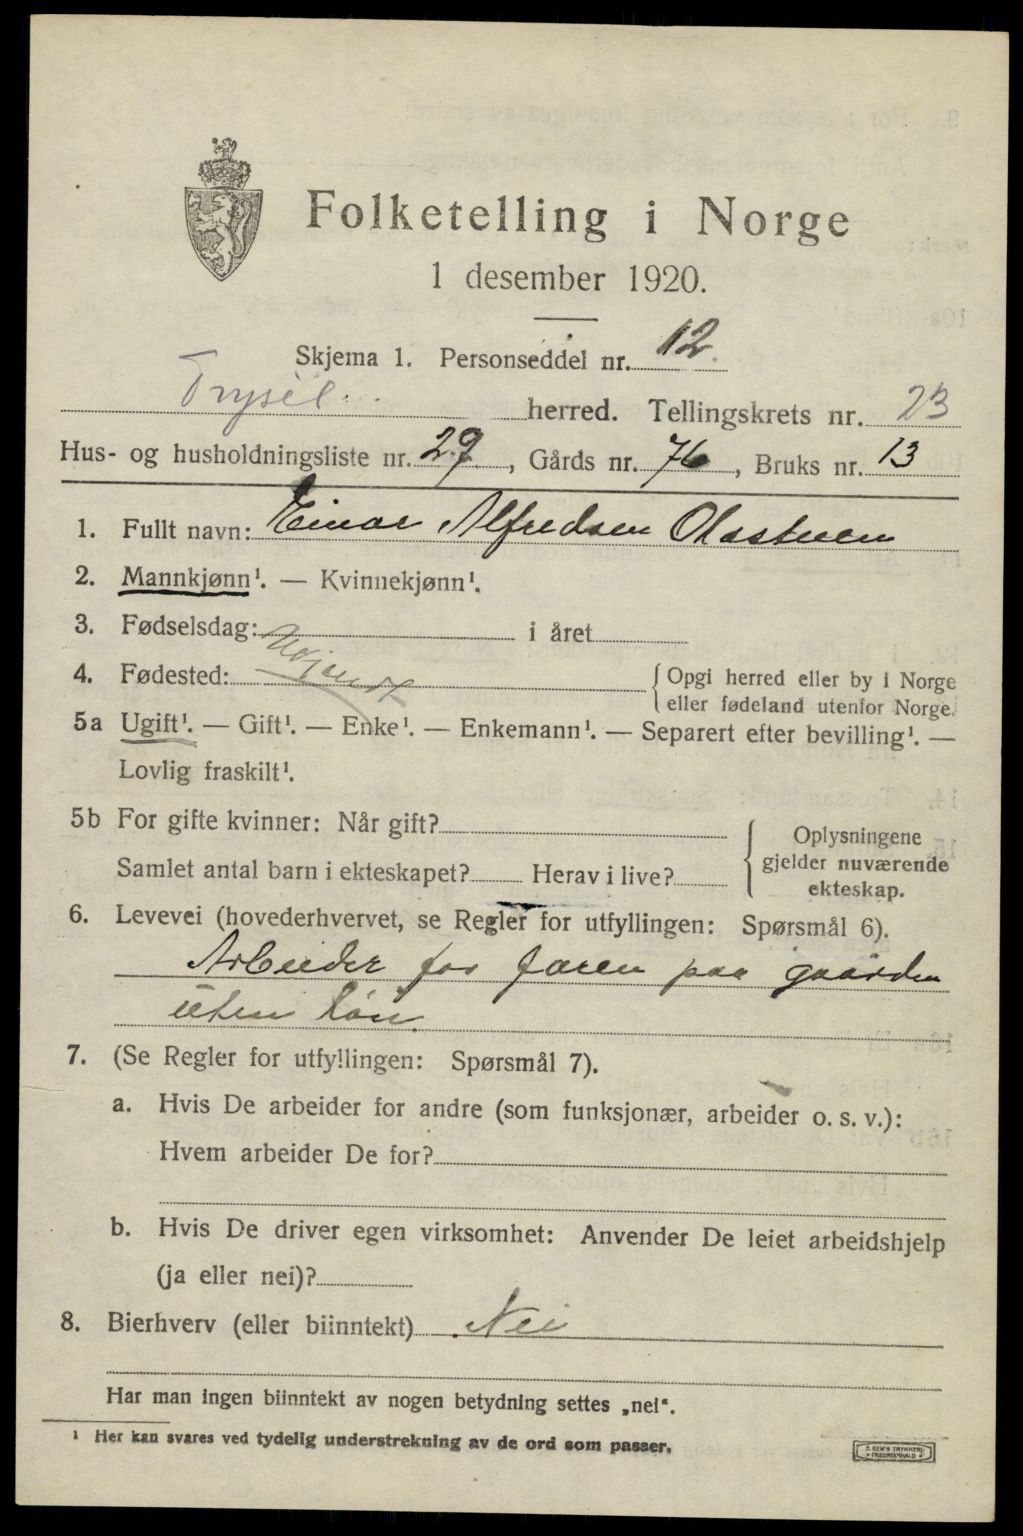 Folketelling i Norge
1 desember 1920.
Skjema 1. Personseddel nr. 12
Trysil herred. Tellingskrets nr. 23
Hus- og husholdningsliste nr. 29, Gårds nr. 76, Bruks nr. 13
1. Fullt navn: Einar Alfredsen
2. Mannkjønn¹. — Kvinnekjønn¹.
3. Fødselsdag: i året
4. Fødested: Ukjendt { Opgi herred eller by i Norge
eller fødeland utenfor Norge.
5a Ugift¹. — Gift¹. — Enke¹. — Enkemann¹. — Separert efter bevilling¹. —
Lovlig fraskilt¹.
5b For gifte kvinner: Når gift?
Samlet antal barn i ekteskapet? Herav i live?
Oplysningene
gjelder nuværende
ekteskap.
6. Levevei (hovederhvervet, se Regler for utfyllingen: Spørsmål 6).
Arbeider for faren paa gaarden
uten løn.
7. (Se Regler for utfyllingen: Spørsmål 7).
a. Hvis De arbeider for andre (som funksjonær, arbeider o. s. v.):
Hvem arbeider De for?
b. Hvis De driver egen virksomhet: Anvender De leiet arbeidshjelp
(ja eller nei)?
8. Bierhverv (eller biinntekt) Nei
Har man ingen biinntekt av nogen betydning settes „nei“.
¹ Her kan svares ved tydelig understrekning av de ord som passer.